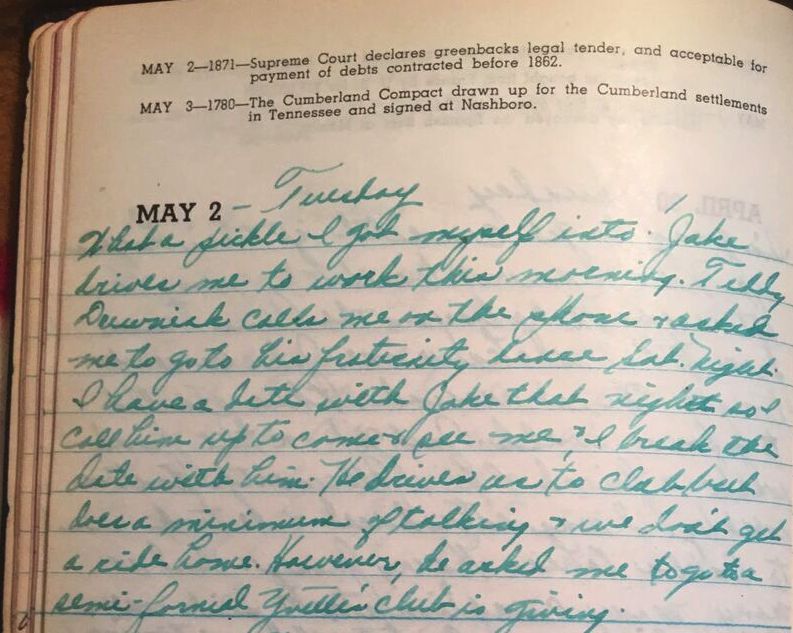 MAY 2—1871—Supreme Court declares greenbacks legal tender, and acceptable for
payment of debts contracted before 1862.
MAY 3—1780—The Cumberland Compact drawn up for the Cumberland settlements
in Tennessee and signed at Nashboro.
MAY 2 – Tuesday
What a pickle I got myself into. Jake
drives me to work this morning.
calls me on the phone & asked
me to go to his fraternity house Sat. night.
I have a date with Jake that night so I
call him up to come & see me, & I break the
date with him. He drives us to club but
does a minimum of talking & we don't get
a ride home. However, he asked me to go to a
semi-formal club is giving.